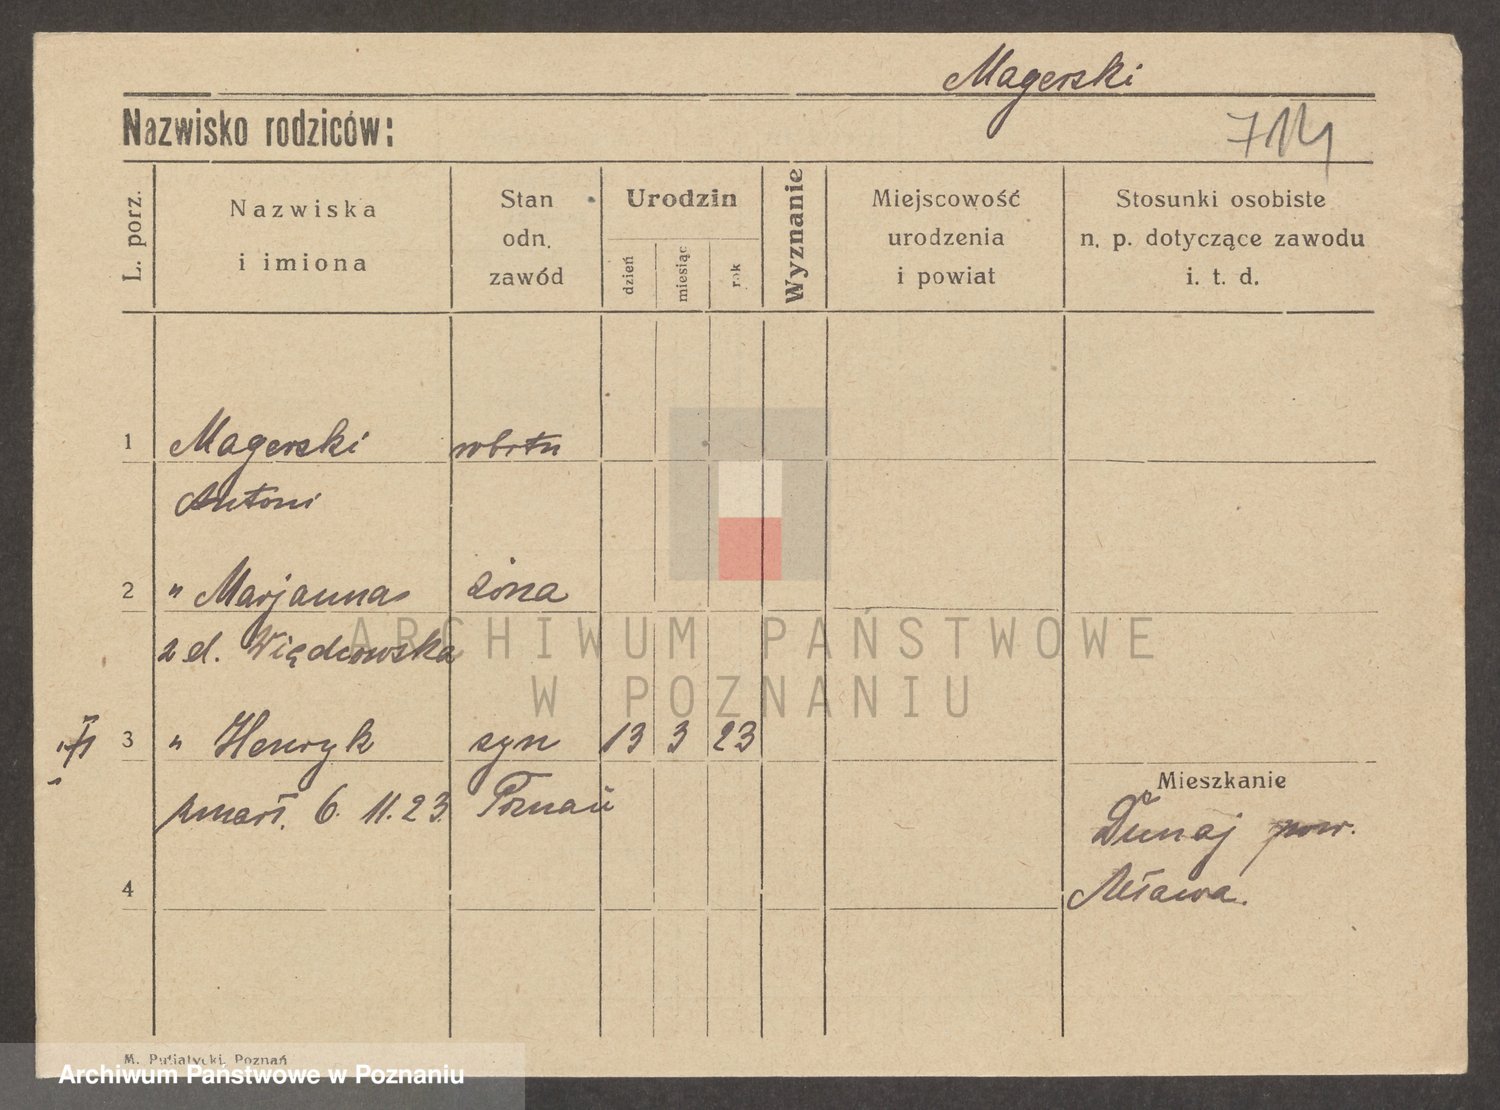 Magerski
714
Nazwisko rodziców:
L. porz.
Nazwiska
i imiona
Stan
odn.
zawód
Urodzin
dzień
miesiąc
rok
Wyznanie
Miejscowość
urodzenia
i powiat
Stosunki osobiste
n. p. dotyczące zawodu
i. t. d.
1 Magerski
Antoni
2 " Marjanna żona
z d. Więckowska
3 " Henryk syn 13 3 23
zmarł. 6. 11. 23. Poznań
Mieszkanie
Dunaj pow.
Mława.
4
ARCHIWUM PAŃSTWOWE
W POZNANIU
M. Putiatycki, Poznań
Archiwum Państwowe w Poznaniu